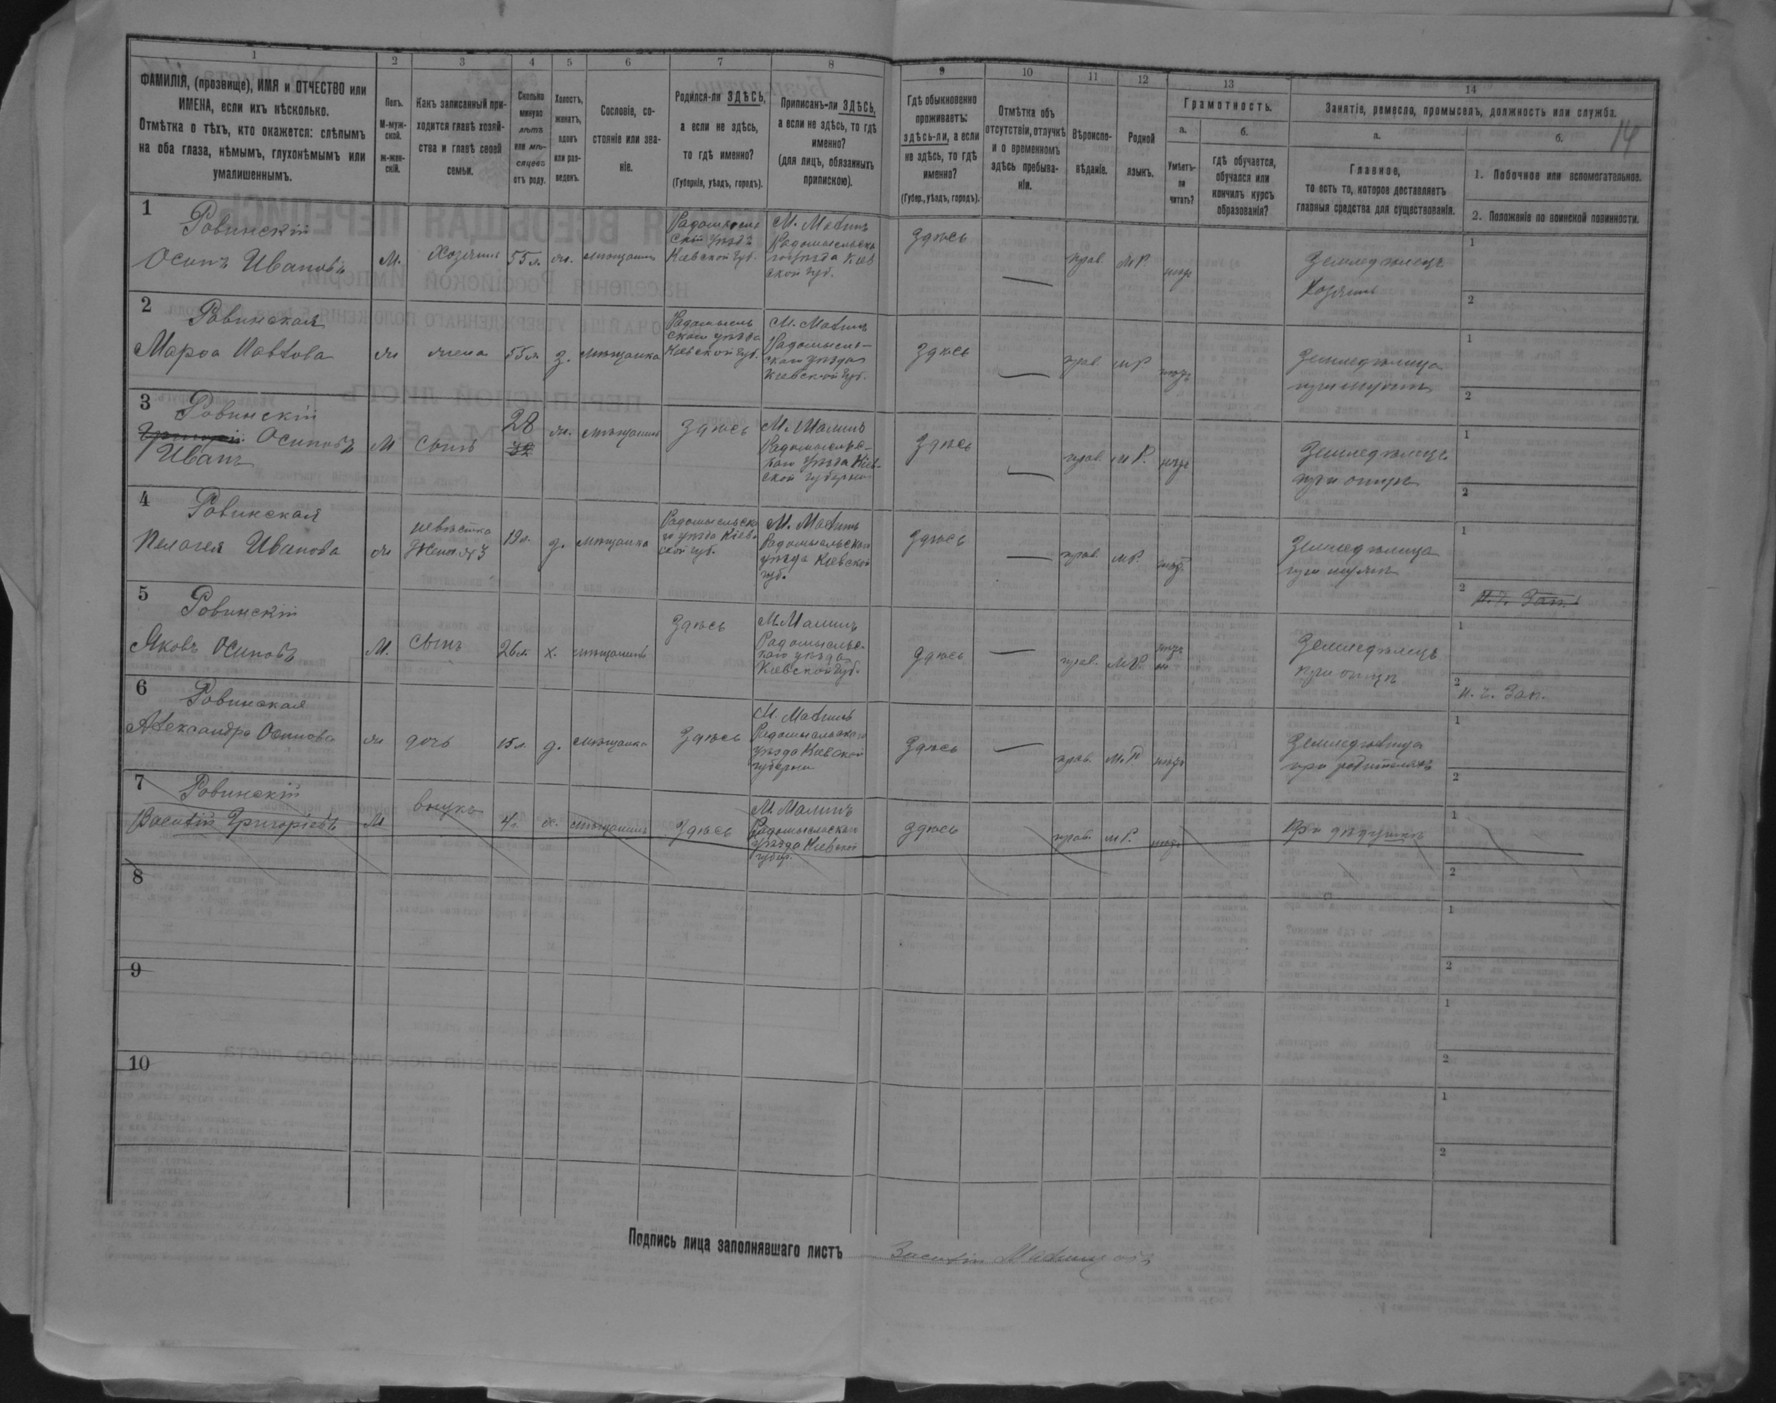 14
1 2 3 4 5 6 7 8 9 10 11 12 13 14
ФАМИЛІЯ, (прозвище), ИМЯ и ОТЧЕСТВО или
ИМЕНА, если ихъ нѣсколько.
Отмѣтка о тѣхъ, кто окажется: слѣпымъ
на оба глаза, нѣмымъ, глухонѣмымъ или
умалишеннымъ.
Полъ.
М-муж-
ской.
ж-жен-
скій.
Какъ записанный при-
ходится главѣ хозяй-
ства и главѣ своей
семьи.
Сколько
минуло
лѣтъ
или мѣ-
сяцевъ
отъ роду.
Холостъ,
женатъ,
вдовъ
или раз-
веденъ.
Сословіе, со-
стояніе или зва-
ніе.
Родился-ли ЗДѢСЬ,
а если не здѣсь,
то гдѣ именно?
(Губернія, уѣздъ, городъ).
Приписанъ-ли ЗДѢСЬ,
а если не здѣсь, то гдѣ
именно?
(для лицъ, обязанныхъ
припискою).
Гдѣ обыкновенно
проживаетъ:
здѣсь-ли, а если
не здѣсь, то гдѣ
именно?
(Губер., уѣздъ, городъ).
Отмѣтка объ
отсутствіи, отлучкѣ
и о временномъ
здѣсь пребыва-
ніи.
Вѣроиспо-
вѣданіе.
Родной
языкъ.
Грамотность.
а.
Умѣетъ-
ли
читать?
б.
гдѣ обучается,
обучался или
кончилъ курсъ
образованія?
Занятіе, ремесло, промыселъ, должность или служба.
а.
Главное,
то есть то, которое доставляетъ
главныя средства для существованія.
б.
1. Побочное или вспомогательное.
2. Положеніе по воинской повинности.
1
Ровинскій
Осипъ Ивановъ
М.
Хозяинъ
55 л.
ж.
мѣщанинъ
Радомысль-
скій уѣздъ
Кіевской губ.
М. Малинъ
Радомысльска-
го уѣзда Кіев
ской губ.
здѣсь
прав.
М.Р.
нѣтъ
Земледѣлецъ
Хозяинъ
1
2
2
Ровинская
Марѳа Павлова
ж
жена
55 л.
з.
мѣщанка
Радомысль
скаго уѣзда
Кіевской губ.
М. Малинъ
Радомысль-
скаго уѣзда
Кіевской губ.
здѣсь
прав.
М.Р.
нѣтъ
Земледѣлица
при мужѣ
1
2
3
Ровинскій
Григорій Осиповъ
Иванъ
М
сынъ
28
ж.
мѣщанинъ
здѣсь
М. Малинъ
Радомысльс-
каго уѣзда Кіев-
ской губерніи
здѣсь
прав.
М.Р.
нѣтъ
Земледѣлецъ
при отцѣ
1
2
4
Ровинская
Пелагея Иванова
ж
невѣстка
жена 3
19 л.
з.
мѣщанка
Радомысльска
го уѣзда Кіев-
ской губ.
М. Малинъ
Радомысльскаго
уѣзда Кіевской
губ.
здѣсь
прав.
М.Р.
нѣтъ
Земледѣлица
при мужѣ
1
2 Н. ч. Зап.
5
Ровинскій
Яковъ Осиповъ
М.
сынъ
26 л
х.
мѣщанинъ
здѣсь
М. Малинъ
Радомысльс-
каго уѣзда
Кіевской губ.
здѣсь
прав.
М.Р.
нѣтъ
Земледѣлецъ
при отцѣ
1
2 Н. ч. Зап.
6
Ровинская
Александра Осипова
ж
дочь
15 л.
д.
мѣщанка
здѣсь
М. Малинъ
Радомысльскаго
уѣзда Кіевской
губерніи
здѣсь
прав.
М.Р.
нѣтъ
Земледѣлица
при родителяхъ
1
2
7
Ровинскій
Василій Григорьевъ
М
внукъ
4 л.
х.
мѣщанинъ
здѣсь
М. Малинъ
Радомысльскаго
уѣзда Кіевской
губер.
здѣсь
прав.
М.Р.
нѣтъ
При дѣдушкѣ
1
2
8
1
2
9
1
2
10
1
2
Подпись лица заполнявшаго листъ